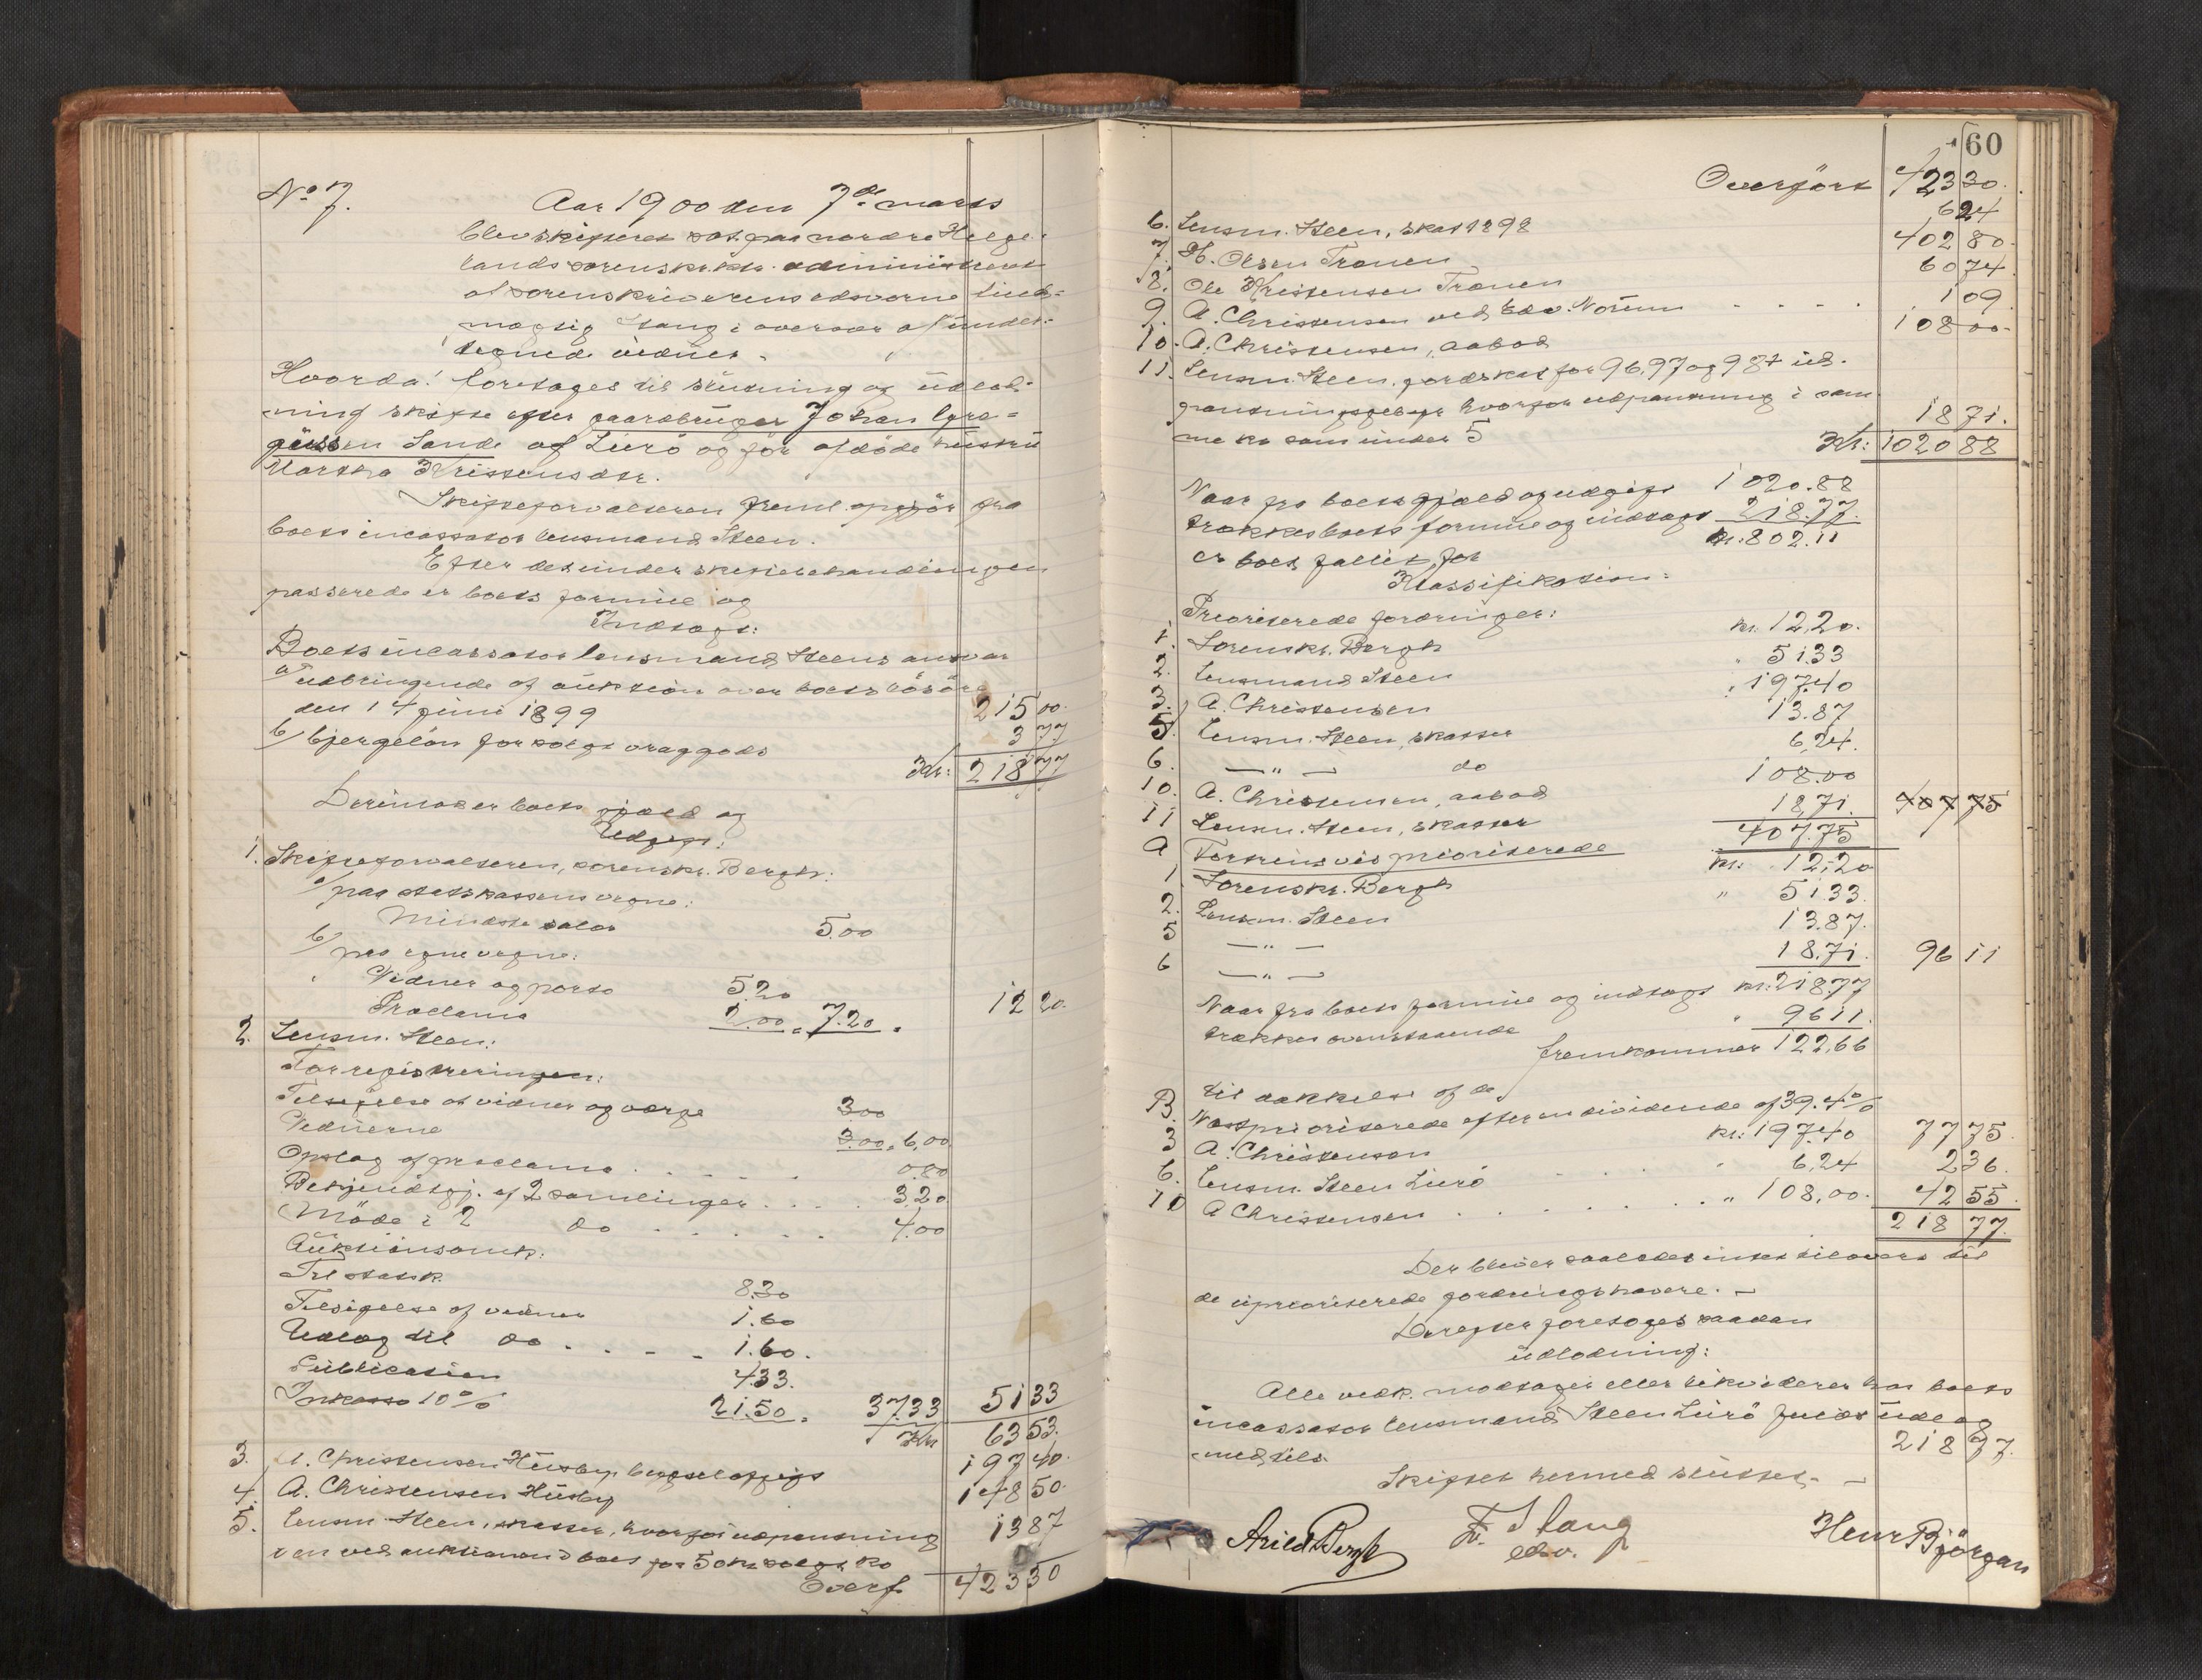 No 7. Aar 1900 den 7de marts
blev skifteret sat paa nordre Helge-
lands sorenskr.ktr. administreret
af sorenskriverens edsvorne fuld-
mægtig Stang i overvær af under-
tegnede vidner.
Hvorda! foretages til slutning og udlod-
ning skifte efter gaardbruger Johan Greg-
gussen Sande af Lurö og før afdøde hustru
Martha Kristensdtr.
Skifteforvalteren freml. opgjør fra
boets incassator lensmand Steen.
Efter det under skiftebehandlingen
passerede er boets formue og
Indtægt:
Boets incassator lensmand Steens ansvar
a/ udbringende af auktion over boets løsøre
den 14 juni 1899 215 00.
b/ bjergeløn for solgt vraggods 3 77
Kr: 218 77
Derimod er boets gjæld og
Udgift:
1. Skifteforvalteren, sorenskr. Bergh:
a/ paa statskassens vegne:
Mindste salær 5.00
b/ paa egne vegne:
Vidner og porto 5.20
Proclama 2.00 " 7.20 " 12 20.
2. Lensm. Steen:
For registreringen:
Tilsigelse af vidner og værge 3.00
Vidnerne 3.00 " 6,00
Opslag af proclama . . . . 0.80
Bekjendtgj. af 2 samlinger . . . . 3.20
Møde i 2 do . . . . . 4.00
Auktionsomk:
Til statsk. 8.30
Tilsigelse af vidner 1.60
Udlæg til do . . . . 1.60.
Publication 4.33.
Inkasso 10 % 21.50 " 37.33 51 33
Kr. 63 53.
3. A. Christensen Husby 197 40.
4. A. Christensen Husby 148 50.
5. Lensm. Steen, skatter, hvorfor udpantning
i en ved auktionen i boet for 50 kr solgt ko 13 87
Overf. 423 30
60
Overført 423 30.
6. Lensm. Steen, skat 1898 6 24
7. H. Olsen Trænen 402 80.
8. Ole Kristensen Trænen 60 74.
9. A. Christensen ved Edv. Norum . . . . 1 09.
10. A. Christensen, aabod 108 00.
11. Lensm. Steen, jordskat for 96, 97 og 98 + ud-
pantningsgebyr hvorfor udpantning i sam-
me ko som under 5 18 71.
Kr: 1020 88
Naar fra boets gjæld og udgift 1020.88
trækkes boets formue og indtægt 218.77.
er boet fallit for Kr: 802.11
Klassifikation:
Prioriterede fordringer:
1. Sorenskr. Bergh kr. 12,20.
2. Lensmand Steen " 51.33
3. A. Christensen " 197.40
5. Lensm. Steen, skatter 13.87
6. — " — do 6,24.
10. A. Christensen, aabod 108.00
11 Lensm. Steen, skatter 18,71. 407 75
407.75
A Fortrinsvis prioriterede
1 Sorenskr. Bergh kr: 12,20
2. Lensm. Steen " 51.33.
5 — " — 13.87.
6 — " — 18.71. 96 11
Naar fra boets formue og indtægt kr: 218.77
trækkes ovenstaaende " 96 11.
fremkommer 122,66
til dækkelse af de
B. Næstprioriterede efter en dividende af 39.4 %
3 A. Christensen kr: 197.40 77 75.
6. Lensm. Steen Lurö . . . " 6,24 2 36.
10 A Christensen . . . . . . " 108,00. 42 55.
218 77.
Der bliver saaledes intet tilovers til
de uprioriterede fordringshavere. —
Derefter foretoges saadan
udlodning:
Alle vedk. modtager eller likviderer hos boets
incassator lensmand Steen Lurö fuldt ude og
med tils. 218 77.
Skiftet hermed sluttet. —
Arild Bergh F. Stang Henr Bjørgan
edsv.